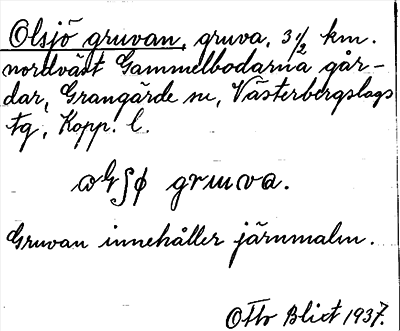 Olsjö gruvan, gruva, 3 1/2 km.
nordväst Gammelbodarna går-
dar, Grangärde sn, Västerbergslags
tg, Kopp. l.
gruva.
Gruvan innehåller järnmalm.
Otto Blixt 1937.